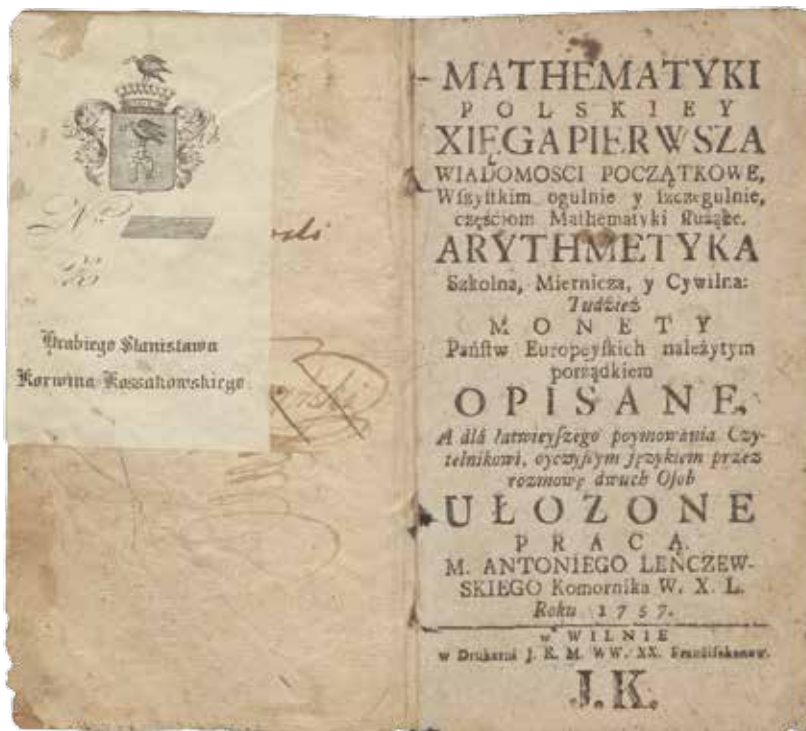 Hrabiego Stanisława
Korwina-Kossakowskiego
MATHEMATYKI
POLSKIEY
XIĘGA PIERWSZA
WIADOMOSCI POCZĄTKOWE,
Wſzyſtkim ogulnie y ſzczegulnie,
częściom Mathematyki ſłużące.
ARYTHMETYKA
Szkolna, Miernicza, y Cywilna:
Tudźież
MONETY
Pańſtw Europeyſkich należytym
porządkiem
OPISANE,
A dlá łatwieyſzego poymowania Czy-
telnikowi, oyczyſtym językiem przez
rozmowę dwuch Oſob
UŁOZONE
PRACĄ.
M. ANTONIEGO LEŃCZEW-
SKIEGO Komornika W. X. L.
Roku 1757.
w WILNIE
w Drukarni J. K. M. WW. XX. Franciſzkanow.
J.K.